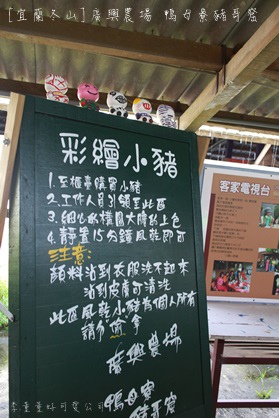 [宜蘭冬山]廣興農場 鴨母寮豬哥窟
彩繪小豬
1.至櫃臺購買小豬
2.工作人員引領至此區
3.細心水構圖大膽的上色
4.靜置15分鐘風乾即可
注意:
顏料沾到衣服洗不起來
沾到皮膚可清洗
此區風乾小豬為個人所有
請勿偷拿
廣興農場
鴨母寮
豬哥窟
客家電視台